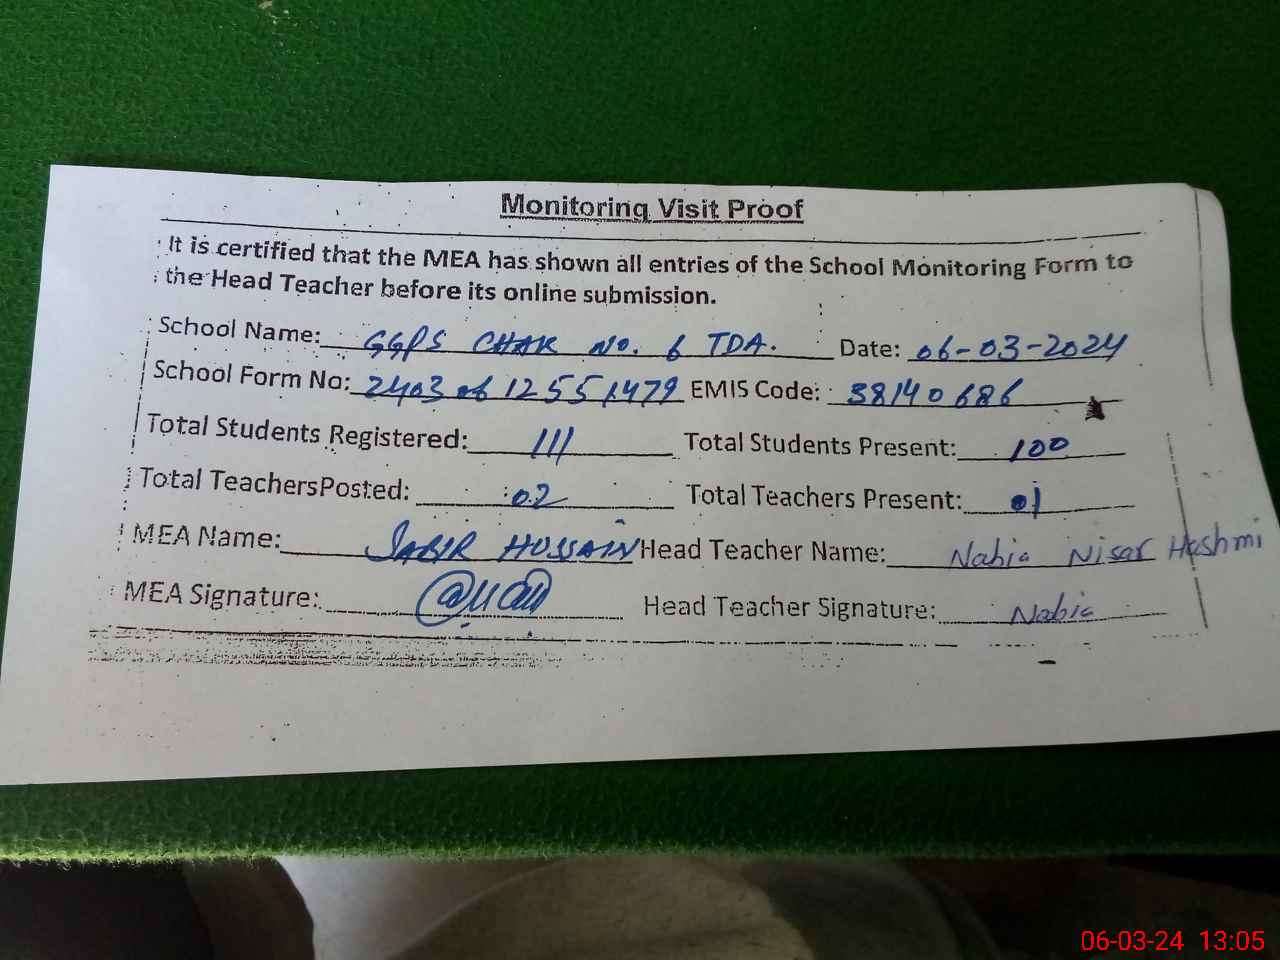 Monitoring Visit Proof
It is certified that the MEA has shown all entries of the School Monitoring Form to
the Head Teacher before its online submission.
School Name: GGPS CHAK No. 6 TDA. Date: 06-03-2024
School Form No: 240306 12551479 EMIS Code: 38140686
Total Students Registered: 111 Total Students Present: 100
Total Teachers Posted: 02 Total Teachers Present: 01
MEA Name: SABIR HUSSAIN Head Teacher Name: Nabia Nisar Hashmi
MEA Signature: Head Teacher Signature: Nabia
06-03-24 13:05